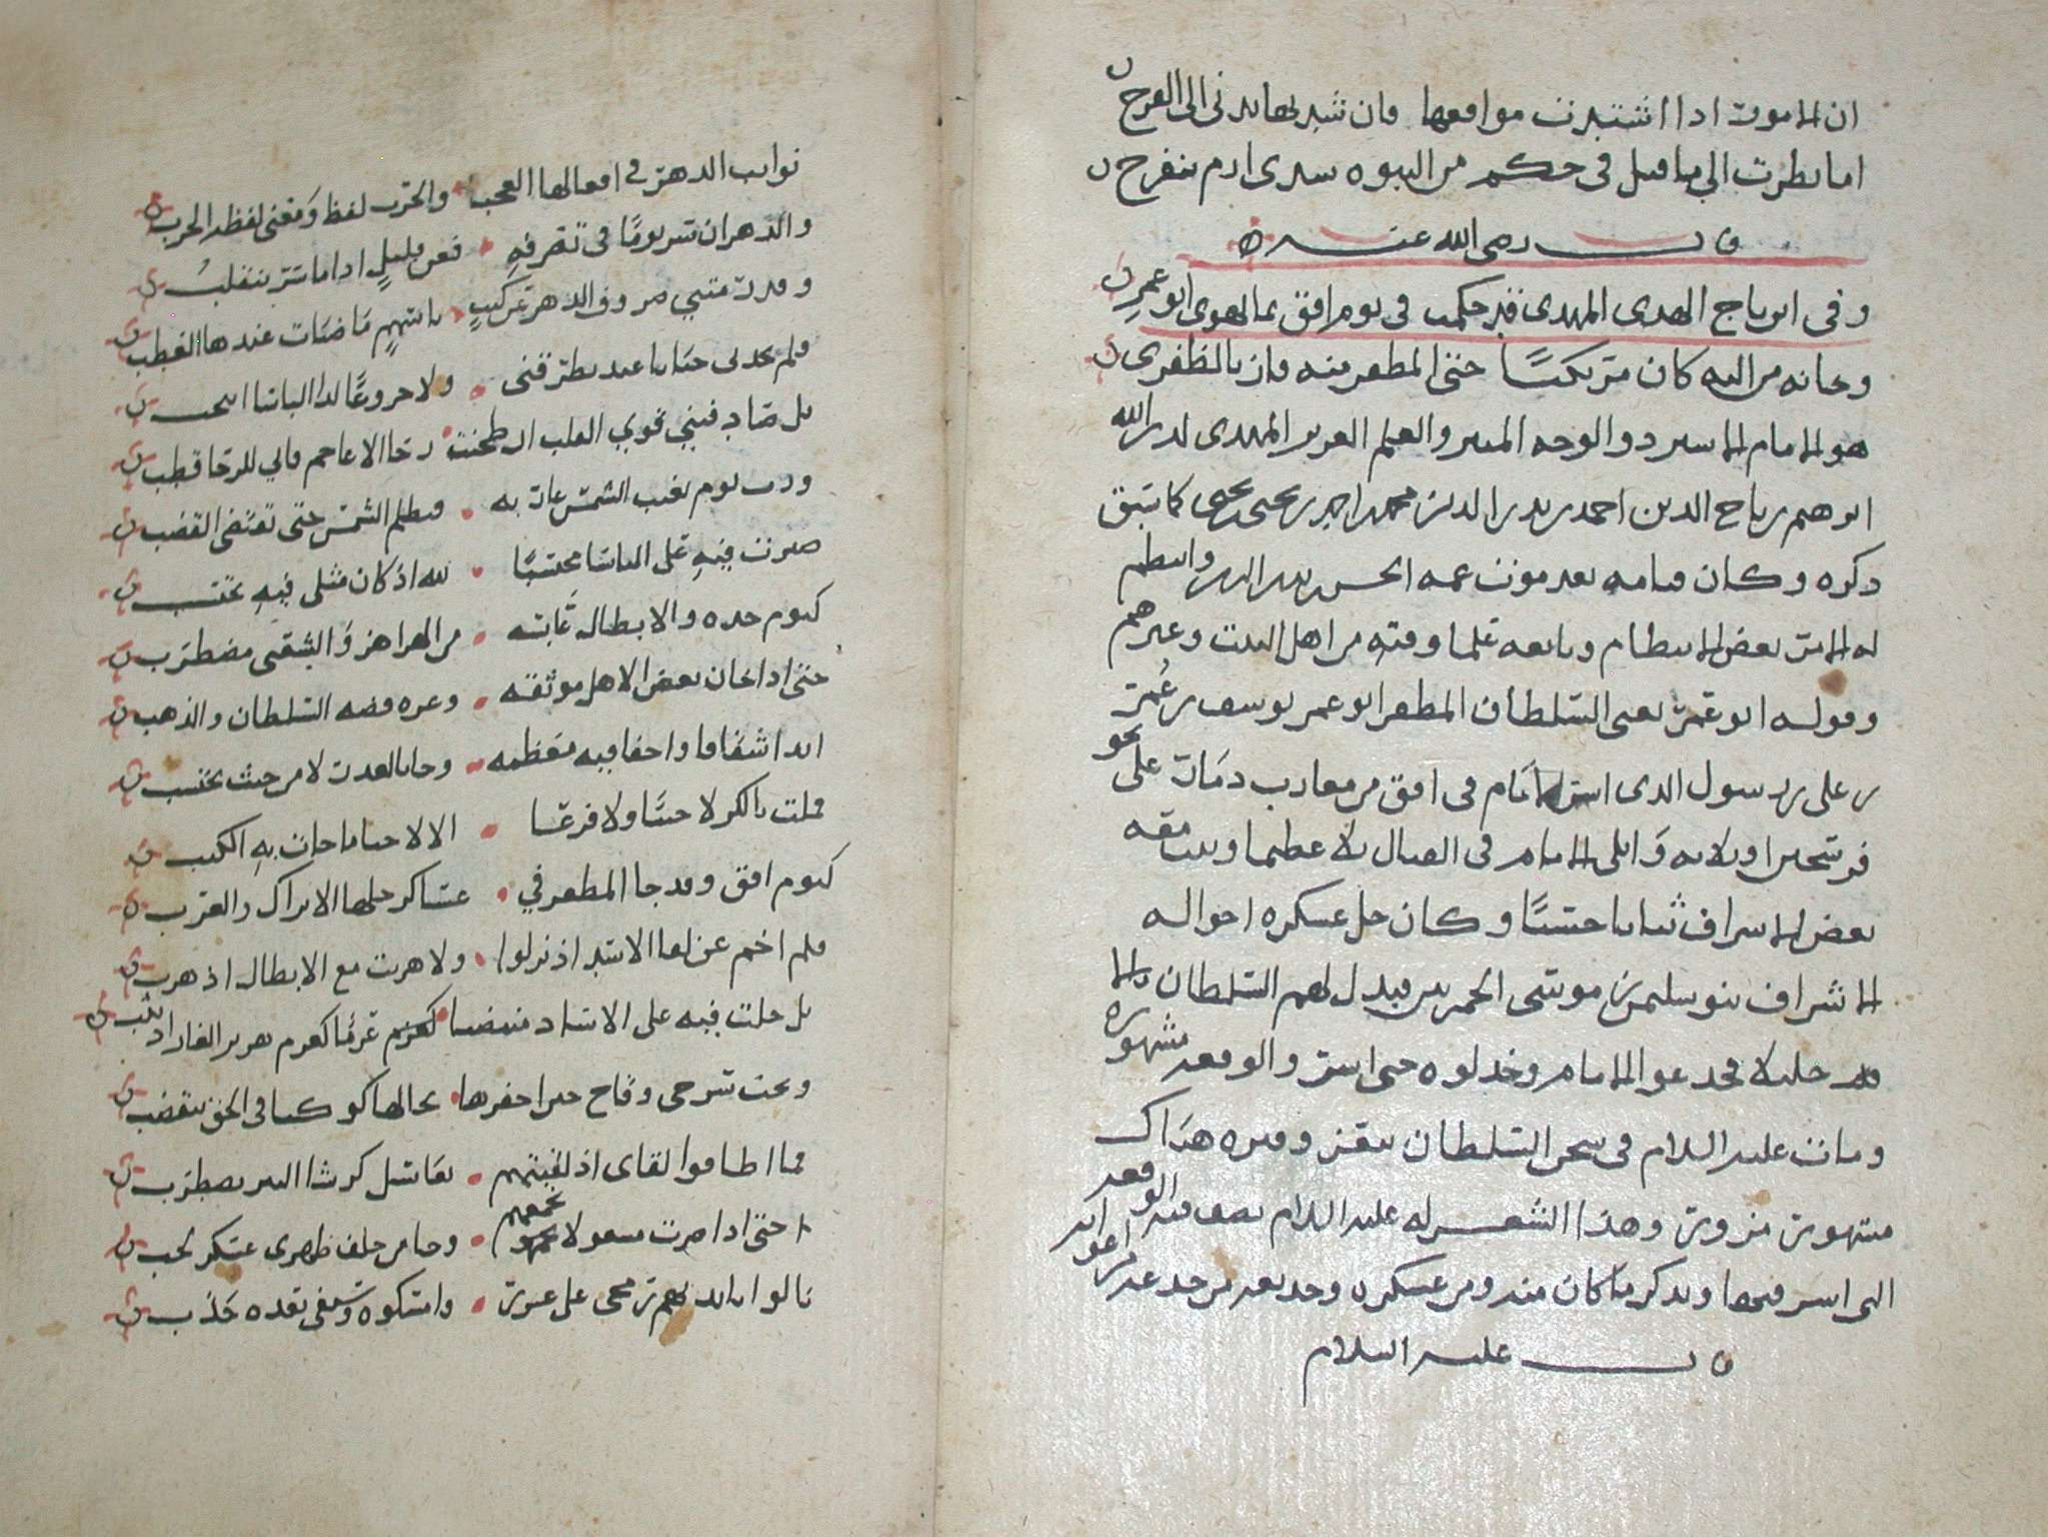 ان الامور اذا اشتدت مواقعها فان شدتها تدنى الى الفرج
اما نظرت الى ما قيل فى حكم من النبوة سدى ازم تنفرج
قال رضى الله عنه
وفى ابن تاج الهدى المهدى قد حكمت فى يوم افق بما يهوى ابو عمر
وخانه من اليه كان مرتكنا حتى المظفر منه فاز بالظفر
هو الامام الاسير ذو الوجه المنير والعلم الغزير المهدى لدين الله
ابرهيم بن تاج الدين احمد بن بدر الدين محمد بن احمد بن يحيى بن يحيى كما سبق
ذكره وكان قيامه بعد موت عمه الحسن بن بدر الدين وانتظم
له الامر بعض الانتظام وبايعه علما وقته من اهل البيت وغيرهم
وقوله ابو عمر يعنى السلطان المظفر ابو عمر يوسف بن عمر
بن على بن رسول الذى اسر الامام فى افق من مغارب ذمار على نحو
فرسخين او ثلاثة وابلى الامام فى القتال بلاء عظيما
بعض الاشراف ثباتا حسنا وكان جل عسكره اخواله
الاشراف بنو سليمن بن موسى الحمزيين فبذل لهم السلطان مالا
جليلا فخدعوا الامام وخذلوه حتى اسر والوقعة مشهورة
ومات عليه السلام فى سجن السلطان بتعز وقبره هناك
مشهور مزور وهذا الشعر له عليه السلام يصف فيه الوقعة
التى اسر فيها ويذكر ما كان منه ومن عسكره وخديعة من خدعه من اعوانه
قال عليه السلام
نوايب الدهر فى افعالها العجب والحرب لفظ ومعنى لفظه الحرب
والدهر ان سر يوما فى تصرفه فعن قليل اذا ما سر ينقلب
وقد رمتنى صروف الدهر عن كثب باسهم ما ضيات عندها العطب
فلم تجد لى جنانا عند تطرقنى ولا جزوعا لدى الباسا
بل صادفتنى قوي القلب ان طحنت رحا الاعاجم فانى للرحا قطب
ورب يوم تغيب الشمس غارته وتظلم الشمس حتى تضى القضب
صبرت فيه على الباسا محتسبا لله اذ كان مثلى فيه يحتسب
كيوم حده والابطال عابسه من الهزاهز والشقى مضطرب
حتى اذا خان بعض الاهل موثقه وغره فضة السلطان والذهب
ابدا شقاقا واخفا فيه معظمه وجا بالغدر لا من حيث يحتسب
فملت بالكر لا جبنا ولا فزعا الا لاحيا ما جات به الكتب
كيوم افق وقد جا المظفر في عساكر جلها الاتراك والعرب
فلم اخم عن لقا الاسد اذ نزلوا ولا هربت مع الابطال اذ هربوا
بل جلت فيه على الاساد منتضيا عزما كعزم هزبر الغاب اذ يثب
وتحت سرجى وقاح حين احفزها تخالها كوكبا فى الجو ينقض
فما اطاقوا لقاى اذ لقيتهم
حتى اذا صرت مشغولا بجمعهم وجا من خلف ظهرى عسكر لجب
نالوا باايديهم رمحى على عسر وامسكوه وسيفى بعده جذب